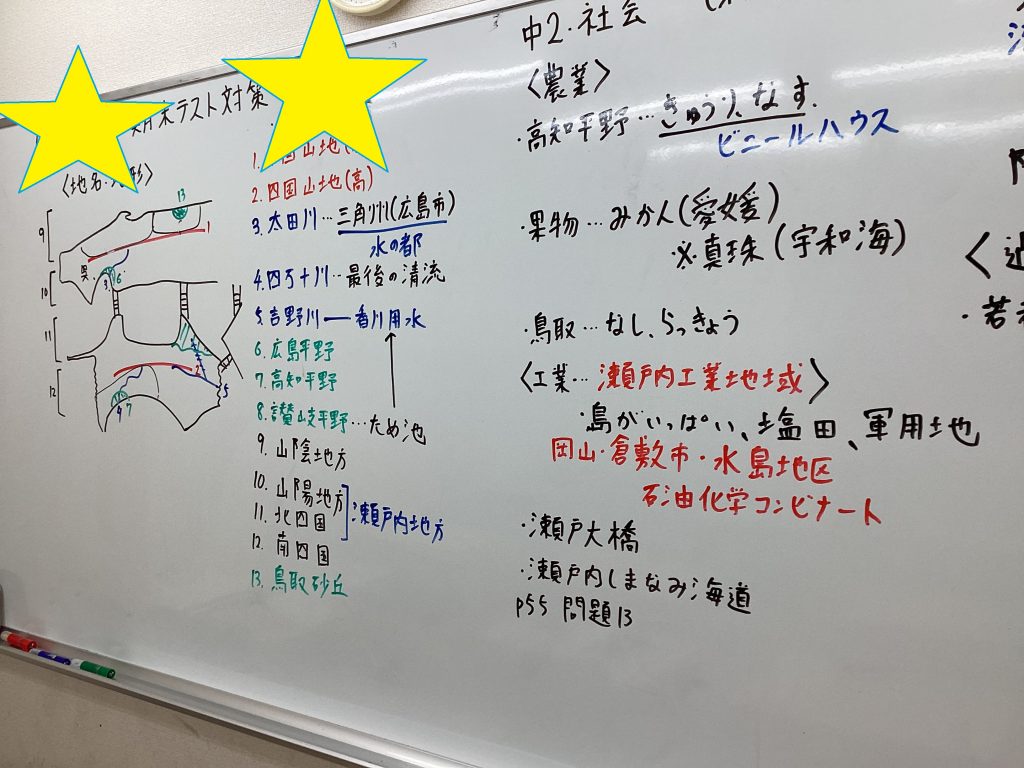 末テスト対策
〈地名・地形〉
13
1
9
呉
3
6
10
11
2
12
5
4
7
1. 国山地(
2. 四国山地(高)
3. 太田川…三角州(広島市)
水の都
4. 四万十川…最後の清流
5. 吉野川―香川用水
6. 広島平野
7. 高知平野
8. 讃岐平野…ため池
9. 山陰地方
10. 山陽地方
瀬戸内地方
11. 北四国
12. 南四国
13. 鳥取砂丘
中2・社会
〈農業〉
・高知平野…きゅうり、なす、
ビニールハウス
・果物…みかん(愛媛)
※真珠(宇和海)
・鳥取…なし、らっきょう
〈工業…瀬戸内工業地域〉
・島がいっぱい、塩田、軍用地
岡山・倉敷市・水島地区
石油化学コンビナート
・瀬戸大橋
・瀬戸内しまなみ海道
p55 問題13
〈近
・若